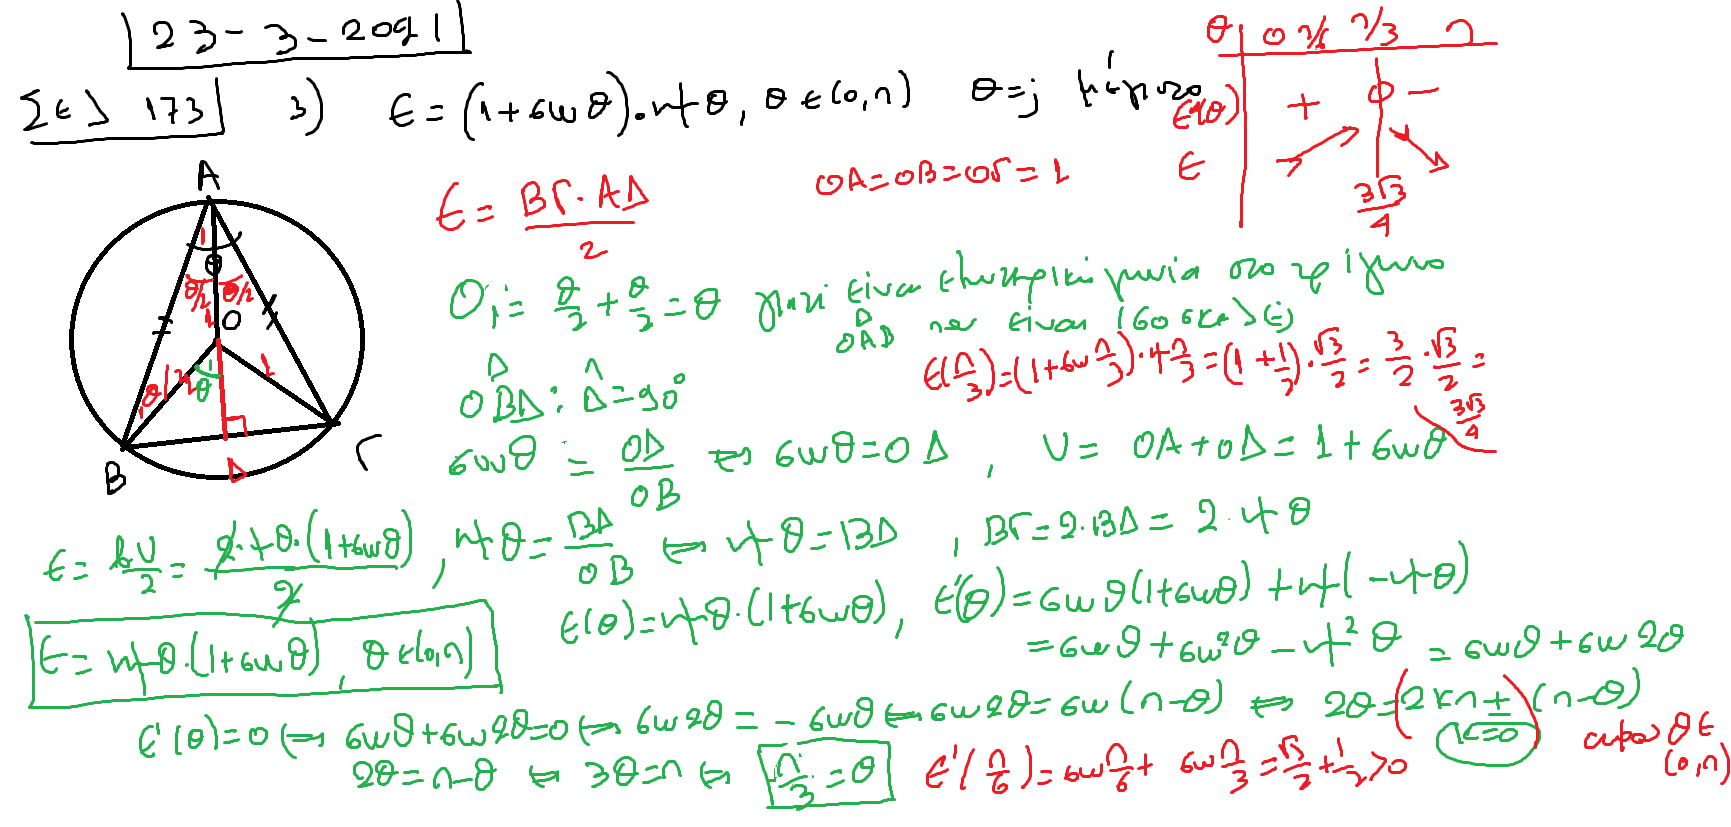 23-3-2021
Σελ 173 3) Ε = (1+συνθ)·ημθ, θ∈(0,π) θ=; μέγιστο
θ 0 π/6 π/3 π
Ε'(θ) + 0 -
Ε
3√3/4
Α
1
θ
θ/2 θ/2
1 Ο
θ/2 θ 1
Β Δ Γ
Ε = ΒΓ·ΑΔ/2
ΟΑ=ΟΒ=ΟΓ=1
Ο₁ = θ/2 + θ/2 = θ γιατί είναι εξωτερική γωνία στο τρίγωνο
ΟΑΒ που είναι ισοσκελές
Ε(π/3)=(1+συν π/3)·ημ π/3=(1+1/2)·√3/2=3/2·√3/2=
3√3/4
ΟΒΔ: Δ=90°
συνθ = ΟΔ/ΟΒ ⇔ συνθ=ΟΔ, υ = ΟΑ+ΟΔ= 1+συνθ
Ε= βυ/2 = 2·ημθ·(1+συνθ)/2, ημθ= ΒΔ/ΟΒ ⇔ ημθ=ΒΔ, ΒΓ=2·ΒΔ= 2·ημθ
Ε= ημθ·(1+συνθ), θ∈(0,π)
Ε(θ)=ημθ·(1+συνθ), Ε'(θ)=συνθ(1+συνθ)+ημ(-ημθ)
=συνθ+συν²θ-ημ²θ = συνθ+συν2θ
Ε'(θ)=0 ⇔ συνθ+συν2θ=0 ⇔ συν2θ = -συνθ ⇔ συν2θ=συν(π-θ) ⇔ 2θ=2κπ±(π-θ)
κ=0 αφού θ∈(0,π)
2θ=π-θ ⇔ 3θ=π ⇔ π/3=θ
Ε'(π/6)=συν π/6+ συν π/3=√3/2+1/2>0